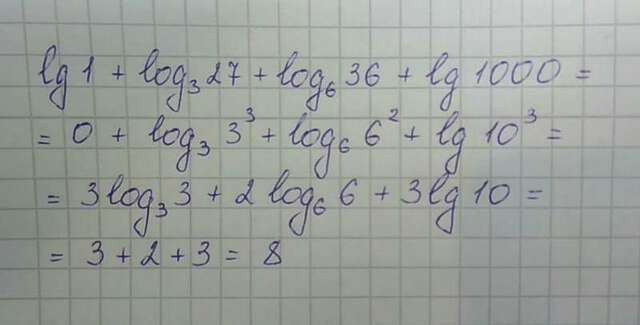 lg 1 + log₃ 27 + log₆ 36 + lg 1000 =
= 0 + log₃ 3³ + log₆ 6² + lg 10³ =
= 3 log₃ 3 + 2 log₆ 6 + 3 lg 10 =
= 3 + 2 + 3 = 8